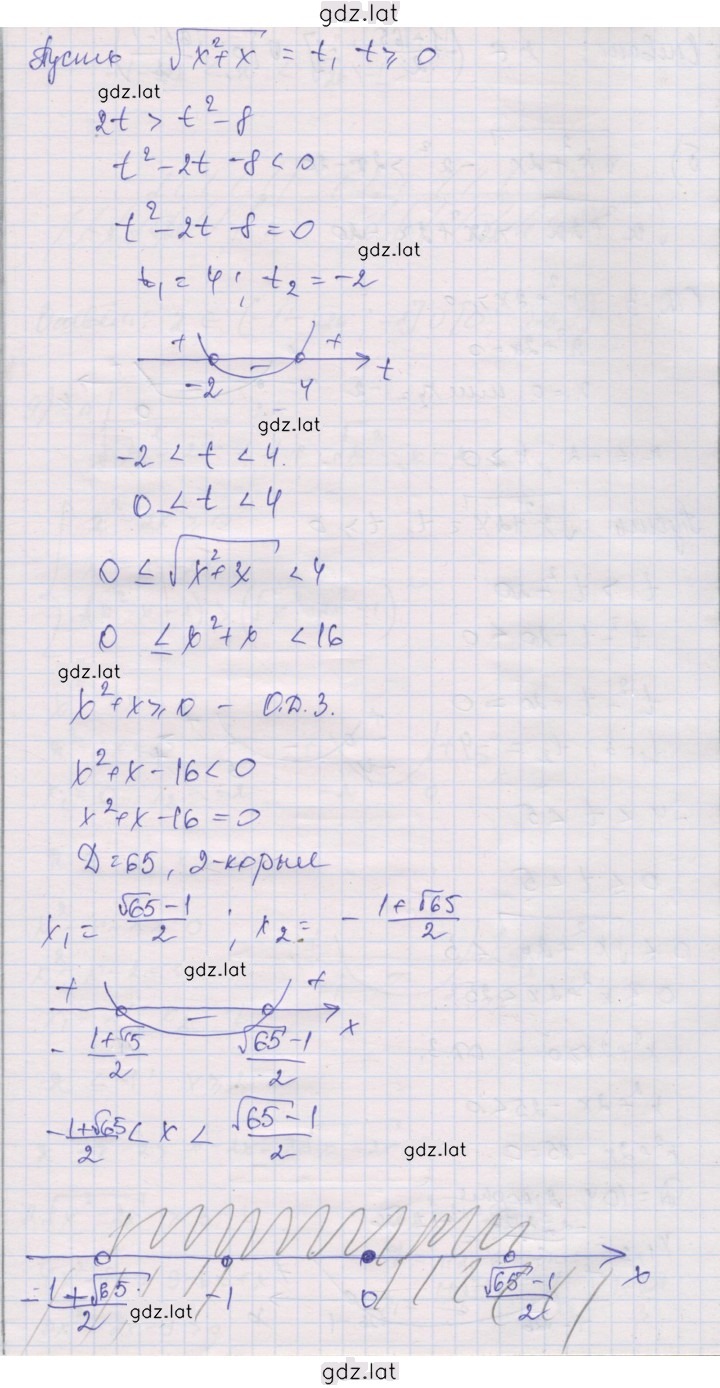 gdz.lat
Пусть √(x²+x) = t, t ≥ 0
gdz.lat
2t > t² - 8
t² - 2t - 8 < 0
t² - 2t - 8 = 0
gdz.lat
t₁ = 4 ; t₂ = -2
+ - + t
-2 4
gdz.lat
-2 < t < 4.
0 ≤ t < 4
0 ≤ √(x²+x) < 4
0 ≤ x²+x < 16
gdz.lat
x²+x ≥ 0 - О.Д.З.
x²+x - 16 < 0
x²+x - 16 = 0
D = 65, 2-корня
x₁ = (√65 - 1)/2 ; x₂ = - (1+√65)/2
gdz.lat
+ - + x
- (1+√5)/2 (√65 - 1)/2
- (1+√65)/2 < x < (√65 - 1)/2
gdz.lat
- (1+√65)/2 -1 0 (√65 - 1)/2 x
gdz.lat
gdz.lat